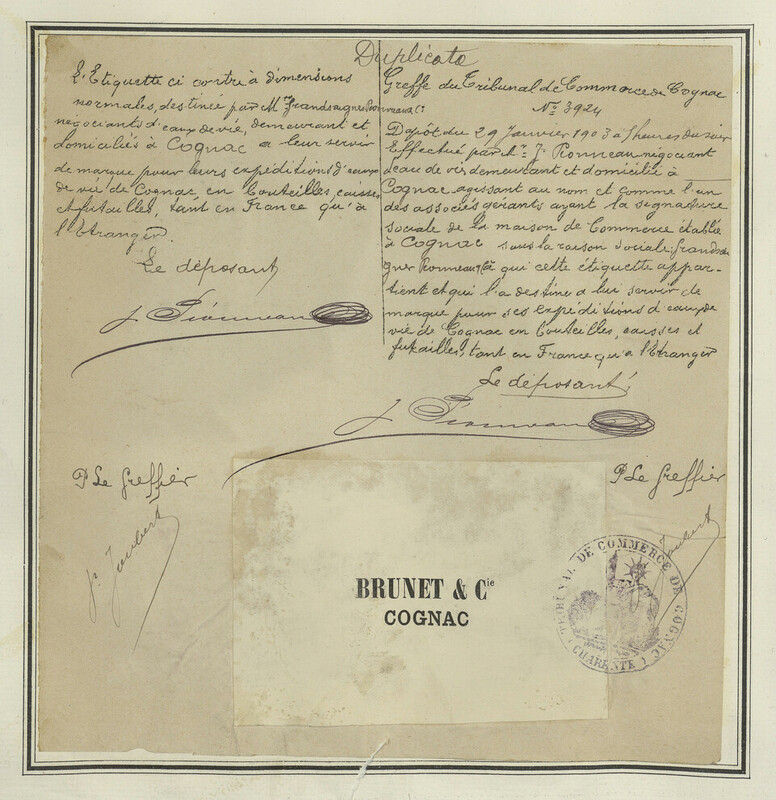 Duplicata
L'Etiquette ci contre à dimensions
normales, destinée par Mrs Grandsaignes
négociants d'eaux de vie, demeurant et
domiciliés à Cognac a leur servir
de marque pour leurs expéditions d'eaux
de vie de Cognac en bouteilles, caisses
et futailles, tant en France qu'à
l'Etranger.
Le déposant
J.
Greffe du Tribunal de Commerce de Cognac
No 3924
Dépôt du 29 Janvier 1903 à heures du soir
Effectué par Mr J. négociant
d'eau de vie demeurant et domicilié à
Cognac agissant au nom et comme l'un
des associés gérants ayant la signature
sociale de la maison de Commerce établie
à Cognac sous la raison sociale
qui cette étiquette appar-
tient et qui l'a destine a lui servir de
marque pour ses expéditions d'eaux de
vie de Cognac en bouteilles, caisses et
futailles, tant en France qu'à l'Etranger
Le déposant
J.
P Le Greffier
Joubert
P Le Greffier
Joubert
BRUNET & Cie
COGNAC
TRIBUNAL DE COMMERCE DE COGNAC
(CHARENTE)